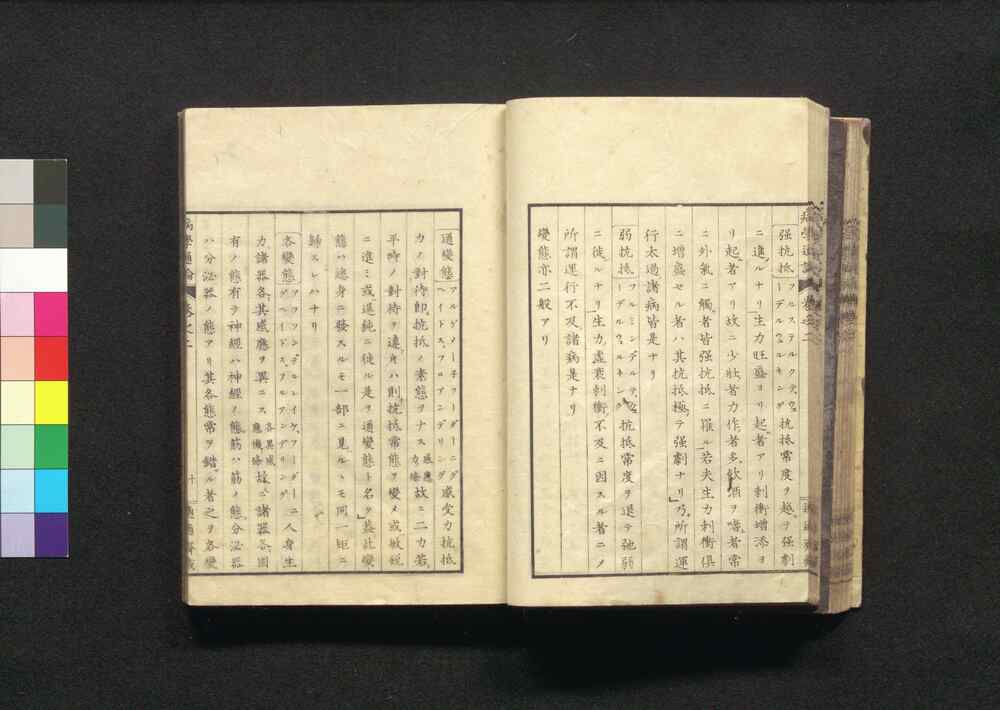 強抗抵フルステルクテウェーデルウェルキング抗抵常度ヲ越テ強劇
ニ進ルナリ生力旺盛ヨリ起者アリ刺衝増添ヨ
リ起者アリ故ニ少壮者力作者多飲酒ヲ嗜者常
ニ外氣ニ觸者皆強抗抵ニ罹ル若夫生力刺衝俱
ニ増盛セル者ハ其抗抵極テ強劇ナリ乃所謂運
行太過諸病皆是ナリ
弱抗抵フルミンデルテウェーデルウェルキング抗抵常度ヲ退テ弛弱
ニ徙ルナリ生力虚衰刺衝不及ニ因スル者ニノ
所謂運行不及諸病是ナリ
變態亦二般アリ
通變態アルゲメーチフーダーニグヘイドスフルアンデリング感受力抗抵
力ノ對待即抗抵ノ素態ヲナス感應力條故ニ二力若
平時ノ對待ヲ違
則抗抵常態ヲ變メ或敏鋭
ニ進ミ或遲鈍ニ徙ル是ヲ通變態ト名ク蓋此變
態ハ總身ニ發スルモ一部ニ見ルヽモ同一矩ニ
歸スレハナリ
各變態
人身生
力諸器各其感應ヲ異ニス各異感應機條故ニ諸器各固
有ノ態有ヲ神經ハ神經ノ態筋ハ筋ノ態分泌器
ハ分泌器ノ態アリ其各態常ヲ錯ル者之ヲ各變
病學通論